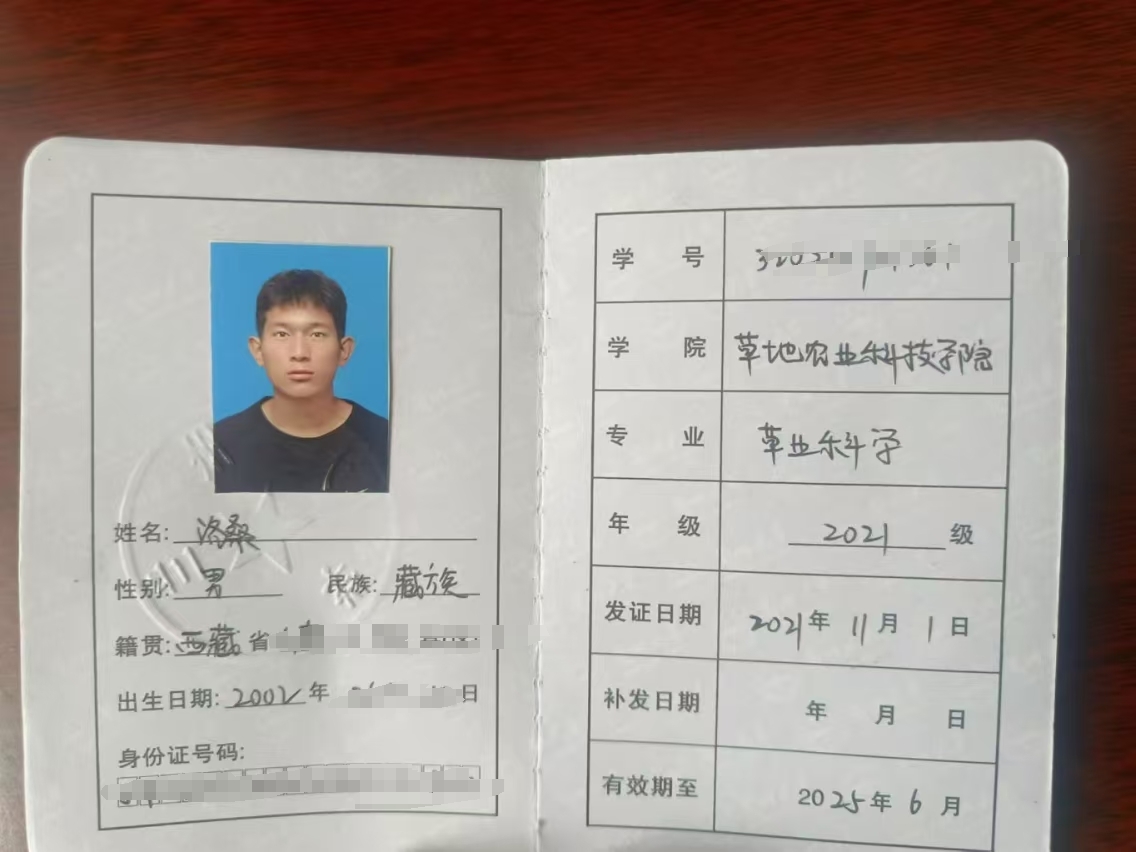 姓名: 洛桑
性别: 男 民族: 藏族
籍贯: 西藏 省
出生日期: 2002 年 日
身份证号码:
学 号
学 院 草地农业科技学院
专 业 草业科学
年 级 2021 级
发证日期 2021 年 11 月 1 日
补发日期 年 月 日
有效期至 2025 年 6 月